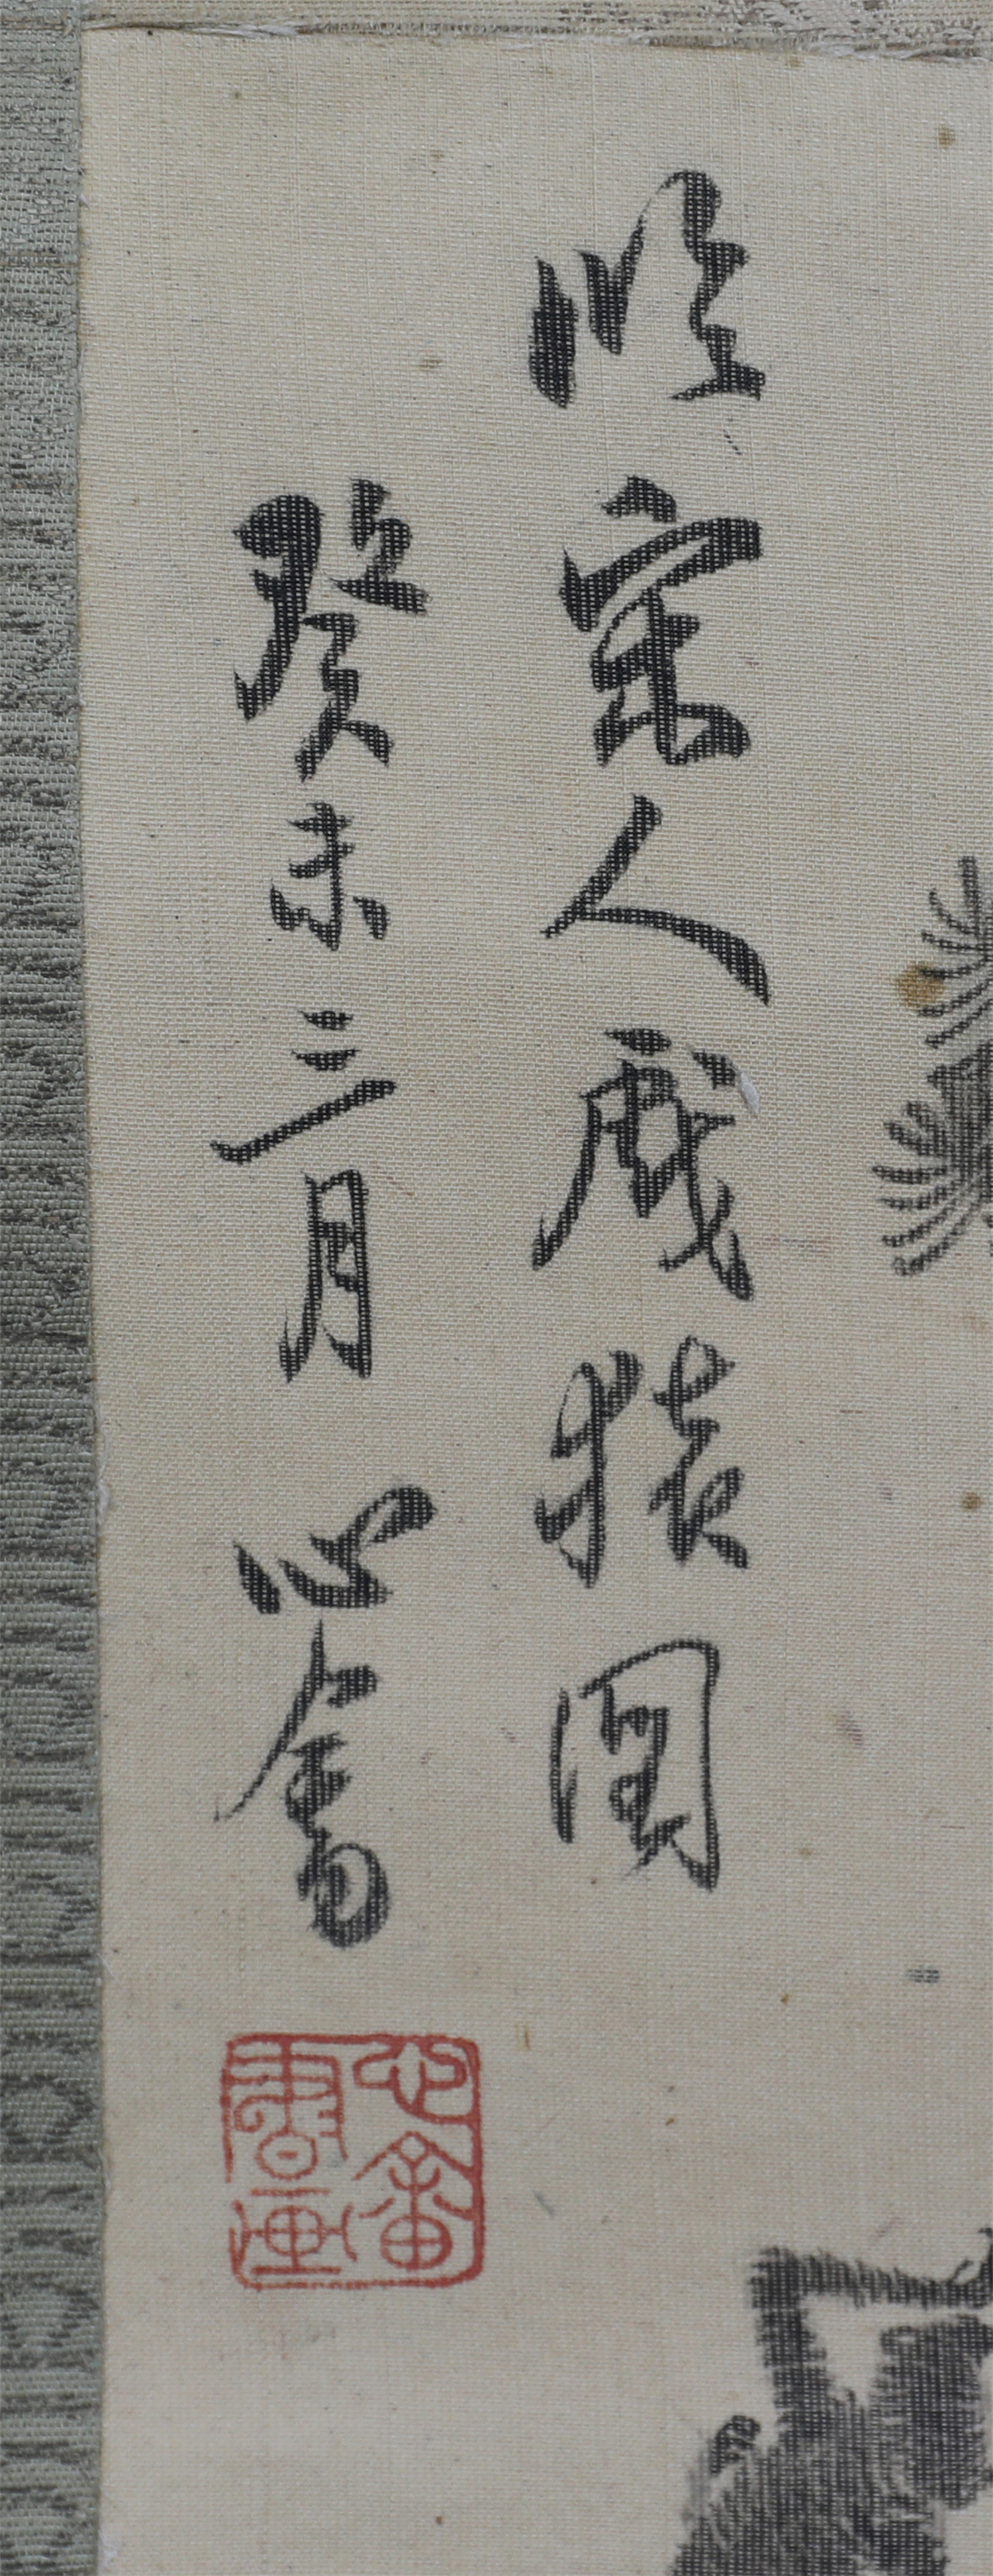 臨宋人戲猿圖
癸未三月 心畬
心畬書畫